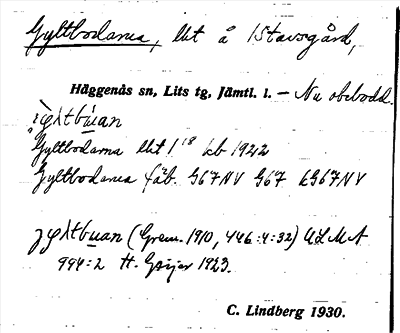 Gyltbodarna, lht å Stavsgård,
Häggenås sn, Lits tg, Jämtl. l. — Nu obebodd.
Gyltbodarna lht 1/18 kb 1922
Gyltbodarna fäb. G67NV G67 kG67NV
(Gren. 1910, 446:4:32) ULMA
994:2 H. Geijer 1923.
C. Lindberg 1930.